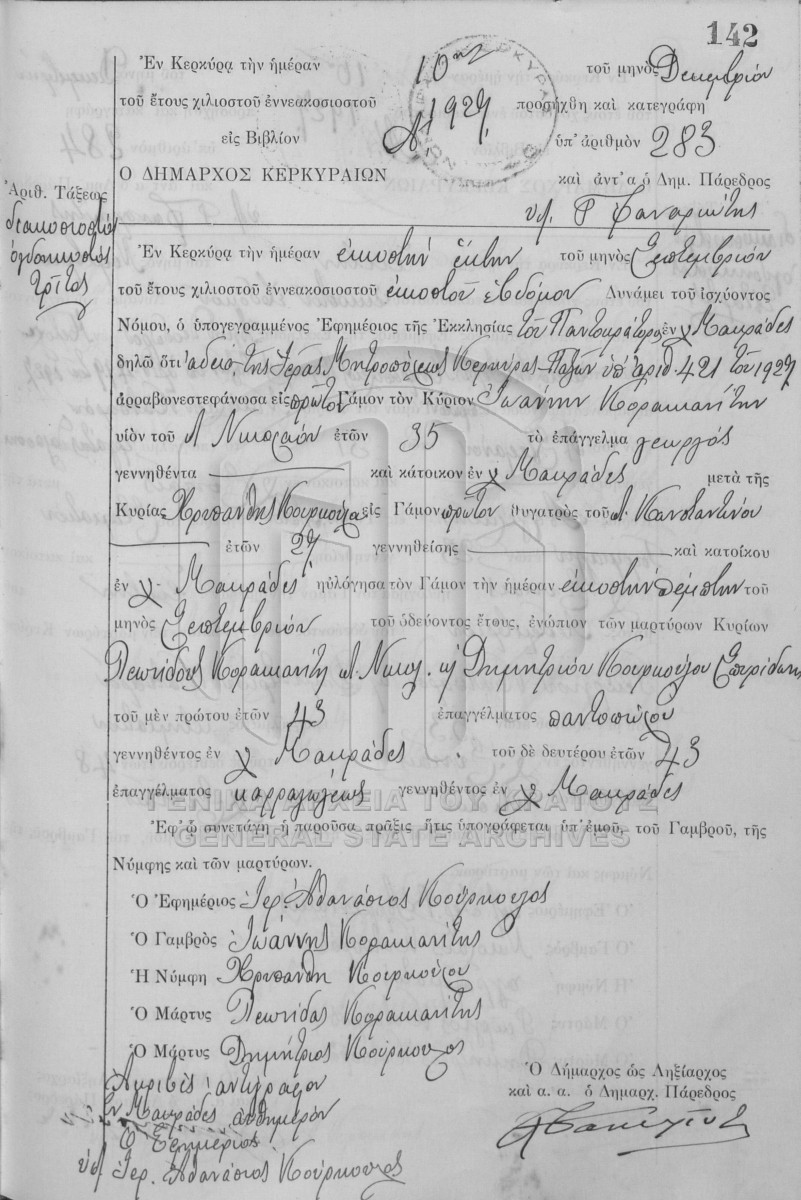 142
Ἐν Κερκύρᾳ τὴν ἡμέραν 10ην τοῦ μηνὸς Δεκεμβρίου
τοῦ ἔτους χιλιοστοῦ ἐννεακοσιοστοῦ 1927 προσήχθη καὶ κατεγράφη
εἰς Βιβλίον Α' ὑπ' ἀριθμὸν 283
Ο ΔΗΜΑΡΧΟΣ ΚΕΡΚΥΡΑΙΩΝ καὶ ἀντ' α ὁ Δημ. Πάρεδρος
Ἀριθ. Τάξεως
διακοσιοστὸς
ὀγδοηκοστὸς
τρίτος
Ἐν Κερκύρᾳ τὴν ἡμέραν εἰκοστὴν ἕκτην τοῦ μηνὸς Σεπτεμβρίου
τοῦ ἔτους χιλιοστοῦ ἐννεακοσιοστοῦ εἰκοστοῦ ἑβδόμου Δυνάμει τοῦ ἰσχύοντος
Νόμου, ὁ ὑπογεγραμμένος Ἐφημέριος τῆς Ἐκκλησίας τοῦ Παντοκράτορος ἐν χ Μακράδες
δηλῶ ὅτι ἀδείᾳ τῆς Ἱερᾶς Μητροπόλεως Κερκύρας Παξῶν ὑπ' ἀριθ. 421 τοῦ 1927
ἀρραβωνεστεφάνωσα εἰς πρῶτον Γάμον τὸν Κύριον Ἰωάννην Κορακιανίτην
υἱὸν τοῦ Νικολάου ἐτῶν 35 τὸ ἐπάγγελμα γεωργός
γεννηθέντα καὶ κάτοικον ἐν χ Μακράδες μετὰ τῆς
Κυρίας Χρυσάνθης Κούρκουλα εἰς Γάμον πρῶτον θυγατρὸς τοῦ Κωνσταντίνου
ἐτῶν 27 γεννηθείσης καὶ κατοίκου
ἐν χ. Μακράδες ηὐλόγησα τὸν Γάμον τὴν ἡμέραν εἰκοστὴν πέμπτην τοῦ
μηνὸς Σεπτεμβρίου τοῦ ὁδεύοντος ἔτους, ἐνώπιον τῶν μαρτύρων Κυρίων
Λεωνίδου Κορακιανίτη Νικολ. κ Δημητρίου Κούρκουλου Σπυρίδωνος
τοῦ μὲν πρώτου ἐτῶν 43 ἐπαγγέλματος παντοπώλου
γεννηθέντος ἐν χ Μακράδες τοῦ δὲ δευτέρου ἐτῶν 43
ἐπαγγέλματος καρραγωγέως γεννηθέντος ἐν χ Μακράδες
ΓΕΝΙΚΑ ΑΡΧΕΙΑ ΤΟΥ ΚΡΑΤΟΥΣ
Ἐφ' ᾧ συνετάγη ἡ παροῦσα πρᾶξις ἥτις ὑπογράφεται ὑπ' ἐμοῦ, τοῦ Γαμβροῦ, τῆς
GENERAL STATE ARCHIVES
Νύμφης καὶ τῶν μαρτύρων.
Ὁ Ἐφημέριος Ἱερ. Ἀθανάσιος Κούρκουλος
Ὁ Γαμβρὸς Ἰωάννης Κορακιανίτης
Ἡ Νύμφη Χρυσάνθη Κουρκούλου
Ὁ Μάρτυς Λεωνίδας Κορακιανίτης
Ὁ Μάρτυς Δημήτριος Κούρκουλος
Ὁ Δήμαρχος ὡς Ληξίαρχος
καὶ α. α. ὁ Δημαρχ. Πάρεδρος
Ἀκριβὲς ἀντίγραφον
ἐν Μακράδες αὐθημερόν
Ὁ Ἐφημέριος
Ἱερ. Ἀθανάσιος Κούρκουλος